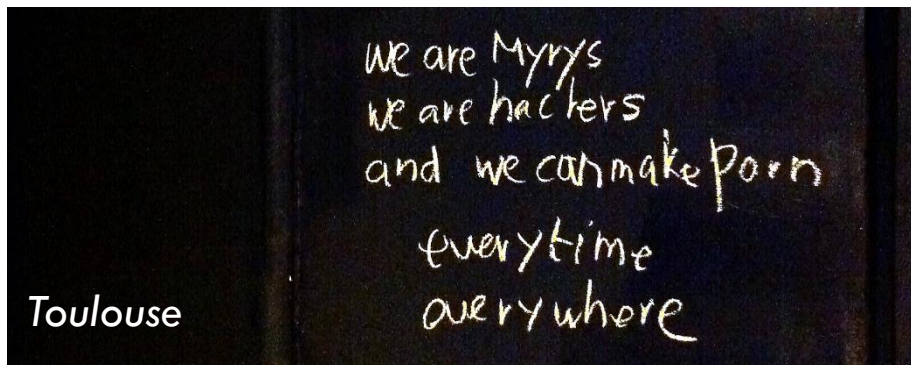 we are Myrys
we are hackers
and we can make porn
everytime
averywhere
Toulouse